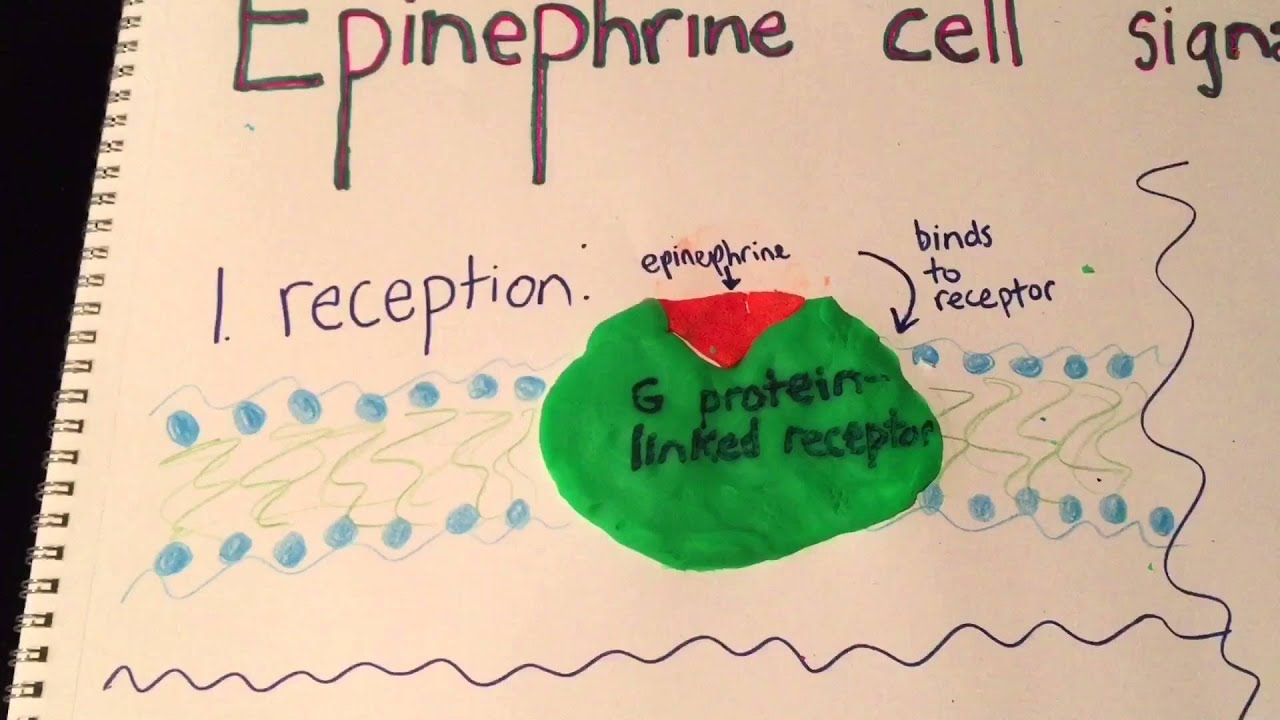 Epinephrine cell signa
1. reception:
epinephrine
binds
to
receptor
G protein-
linked receptor